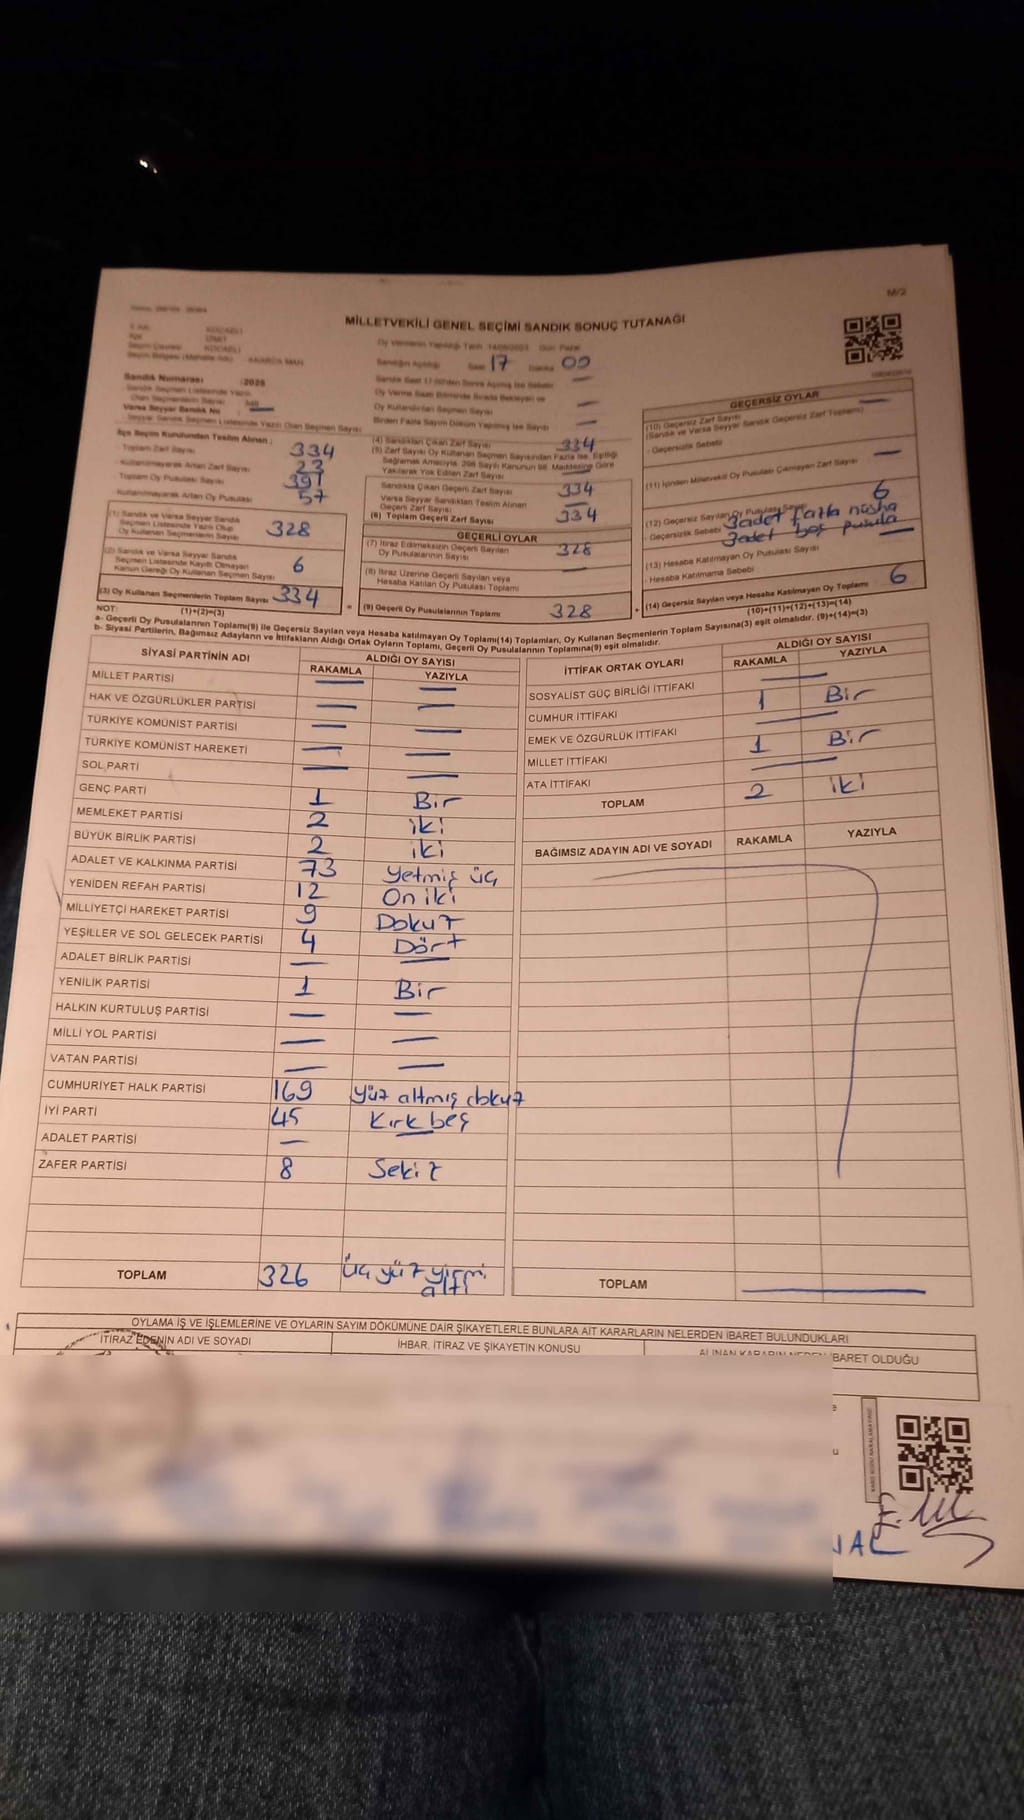 M/2
MİLLETVEKİLİ GENEL SEÇİMİ SANDIK SONUÇ TUTANAĞI
KOCAELİ
İZMİT
KOCAELİ
Oy Vermenin Yapıldığı Tarih: 14/05/2023 Gün: Pazar
Sandığın Açıldığı Saat 17 Dakika 00
Sandık Numarası : 2026
Varsa Seyyar Sandık No : —
İlçe Seçim Kurulundan Teslim Alınan ;
Toplam Zarf Sayısı 334
Kullanılmayarak Artan Zarf Sayısı 23
Toplam Oy Pusulası Sayısı 391
Kullanılmayarak Artan Oy Pusulası 57
(1) Sandık ve Varsa Seyyar Sandık
Seçmen Listesinde Yazılı Olup
Oy Kullanan Seçmenlerin Sayısı 328
(2) Sandık ve Varsa Seyyar Sandık
Seçmen Listesinde Kayıtlı Olmayan
Kanun Gereği Oy Kullanan Seçmen Sayısı 6
(3) Oy Kullanan Seçmenlerin Toplam Sayısı 334
(1)+(2)=(3)
(4) Sandıktan Çıkan Zarf Sayısı 334
(5) Zarf Sayısı Oy Kullanan Seçmen Sayısından Fazla İse, Eşitliği
Sağlamak Amacıyla, 298 Sayılı Kanunun 98. Maddesine Göre
Yakılarak Yok Edilen Zarf Sayısı —
Sandıkta Çıkan Geçerli Zarf Sayısı 334
Varsa Seyyar Sandıktan Teslim Alınan
Geçerli Zarf Sayısı —
(6) Toplam Geçerli Zarf Sayısı 334
GEÇERLİ OYLAR
(7) İtiraz Edilmeksizin Geçerli Sayılan
Oy Pusulalarının Sayısı 328
(8) İtiraz Üzerine Geçerli Sayılan veya
Hesaba Katılan Oy Pusulası Toplamı —
= (9) Geçerli Oy Pusulalarının Toplamı 328
GEÇERSİZ OYLAR
(10) Geçersiz Zarf Sayısı —
(Sandık ve Varsa Seyyar Sandık Geçersiz Zarf Toplamı)
- Geçersizlik Sebebi
(11) İçinden Milletvekili Oy Pusulası Çıkmayan Zarf Sayısı —
(12) Geçersiz Sayılan Oy Pusulası Sayısı 6
- Geçersizlik Sebebi 3 adet fazla nüsha
3 adet boş pusula
(13) Hesaba Katılmayan Oy Pusulası Sayısı —
- Hesaba Katılmama Sebebi
+ (14) Geçersiz Sayılan veya Hesaba Katılmayan Oy Toplamı 6
(10)+(11)+(12)+(13)=(14)
NOT:
a- Geçerli Oy Pusulalarının Toplamı(9) ile Geçersiz Sayılan veya Hesaba katılmayan Oy Toplamı(14) Toplamları, Oy Kullanan Seçmenlerin Toplam Sayısına(3) eşit olmalıdır. (9)+(14)=(3)
b- Siyasi Partilerin, Bağımsız Adayların ve İttifakların Aldığı Ortak Oyların Toplamı, Geçerli Oy Pusulalarının Toplamına(9) eşit olmalıdır.
SİYASİ PARTİNİN ADI ALDIĞI OY SAYISI
RAKAMLA YAZIYLA
MİLLET PARTİSİ — —
HAK VE ÖZGÜRLÜKLER PARTİSİ — —
TÜRKİYE KOMÜNİST PARTİSİ — —
TÜRKİYE KOMÜNİST HAREKETİ — —
SOL PARTİ — —
GENÇ PARTİ 1 Bir
MEMLEKET PARTİSİ 2 iki
BÜYÜK BİRLİK PARTİSİ 2 iki
ADALET VE KALKINMA PARTİSİ 73 Yetmiş üç
YENİDEN REFAH PARTİSİ 12 On iki
MİLLİYETÇİ HAREKET PARTİSİ 9 Dokuz
YEŞİLLER VE SOL GELECEK PARTİSİ 4 Dört
ADALET BİRLİK PARTİSİ — —
YENİLİK PARTİSİ 1 Bir
HALKIN KURTULUŞ PARTİSİ — —
MİLLİ YOL PARTİSİ — —
VATAN PARTİSİ — —
CUMHURİYET HALK PARTİSİ 169 Yüz altmış dokuz
İYİ PARTİ 45 Kırk beş
ADALET PARTİSİ — —
ZAFER PARTİSİ 8 Sekiz
TOPLAM 326 Üç yüz yirmi altı
İTTİFAK ORTAK OYLARI ALDIĞI OY SAYISI
RAKAMLA YAZIYLA
SOSYALİST GÜÇ BİRLİĞİ İTTİFAKI —
CUMHUR İTTİFAKI 1 Bir
EMEK VE ÖZGÜRLÜK İTTİFAKI —
MİLLET İTTİFAKI 1 Bir
ATA İTTİFAKI —
TOPLAM 2 iki
BAĞIMSIZ ADAYIN ADI VE SOYADI RAKAMLA YAZIYLA
TOPLAM —
OYLAMA İŞ VE İŞLEMLERİNE VE OYLARIN SAYIM DÖKÜMÜNE DAİR ŞİKAYETLERLE BUNLARA AİT KARARLARIN NELERDEN İBARET BULUNDUKLARI
İTİRAZ EDENİN ADI VE SOYADI İHBAR, İTİRAZ VE ŞİKAYETİN KONUSU ALINAN KARARIN NEDEN İBARET OLDUĞU